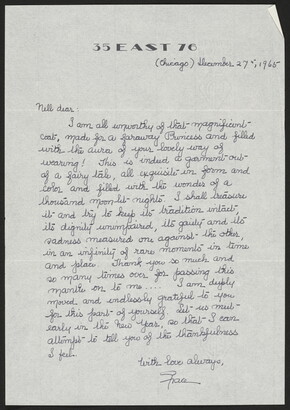 35 EAST 76
(Chicago) December 27th, 1965
Nell dear:
I am all unworthy of that magnificent
coat, made for a faraway Princess and filled
with the aura of your lovely way of
wearing! This is indeed a garment out
of a fairy tale, all exquisite in form and
color and filled with the wonder of a
thousand moon lit nights. I shall treasure
it and try to keep its tradition intact,
its dignity unimpaired, its gaiety and its
sadness measured one against the other,
in an infinity of rare moments in time
and place. Thank you so much and
so many times over for passing this
mantle on to me.... I am deeply
moved and endlessly grateful to you
for this part of yourself. Let us meet
early in the New Year, so that I can
attempt to tell you of the thankfulness
I feel.
With love always,